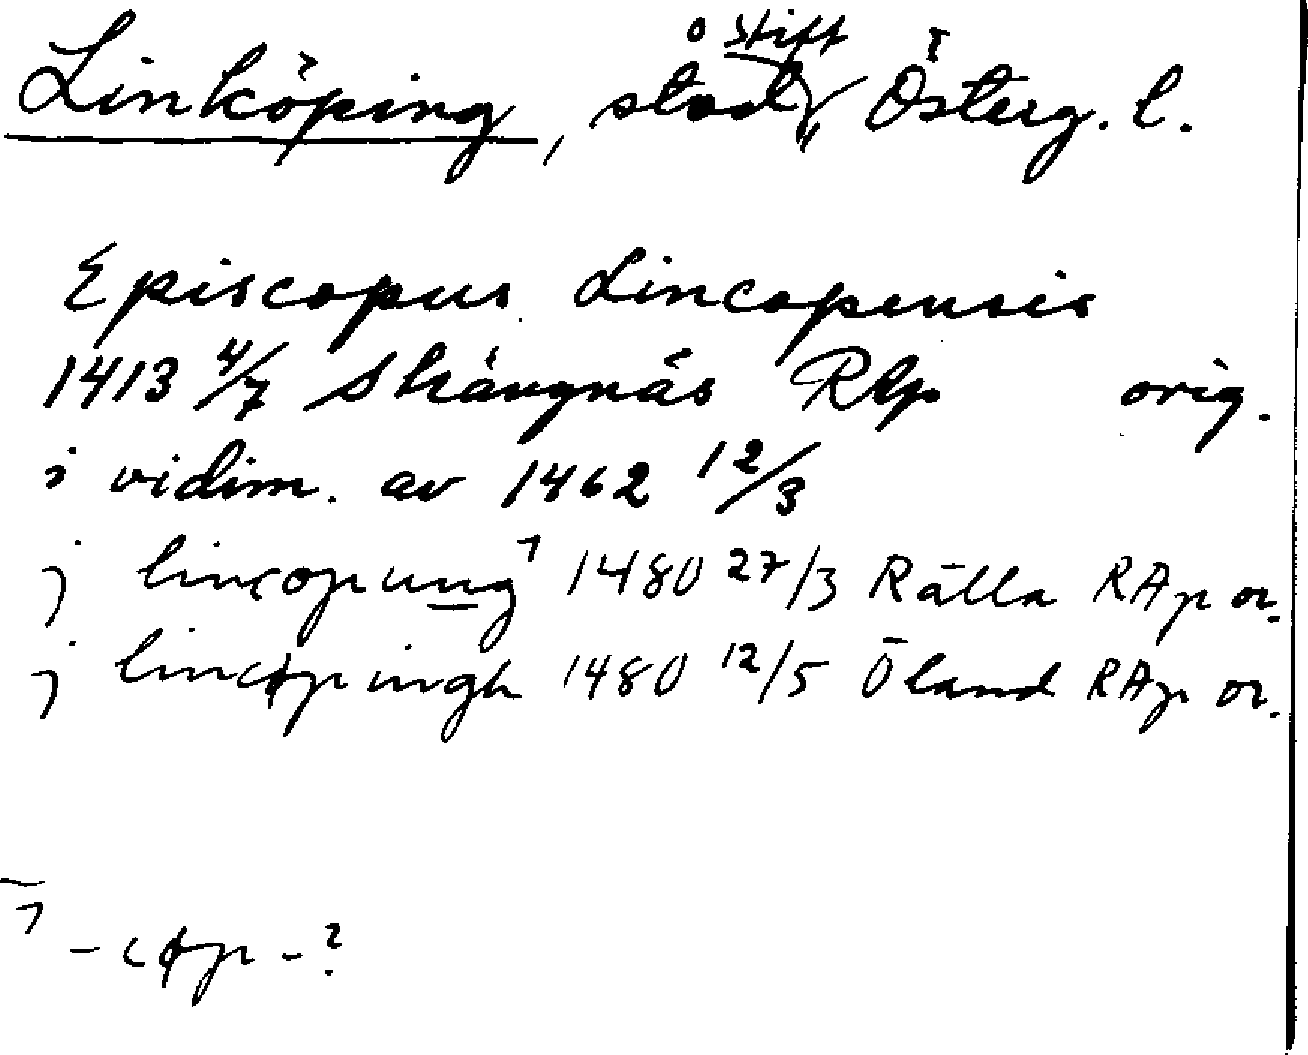 Linköping, stad o stift Österg. l.
Episcopus Lincopensis
1413 4/7 Skängnäs RAp orig.
i vidim. av 1462 12/3
j lincopung ⁊ 1480 27/3 Rälla RAp or.
j lincøpingh 1480 12/5 Öland RAp or.
⁊ -cøp-?